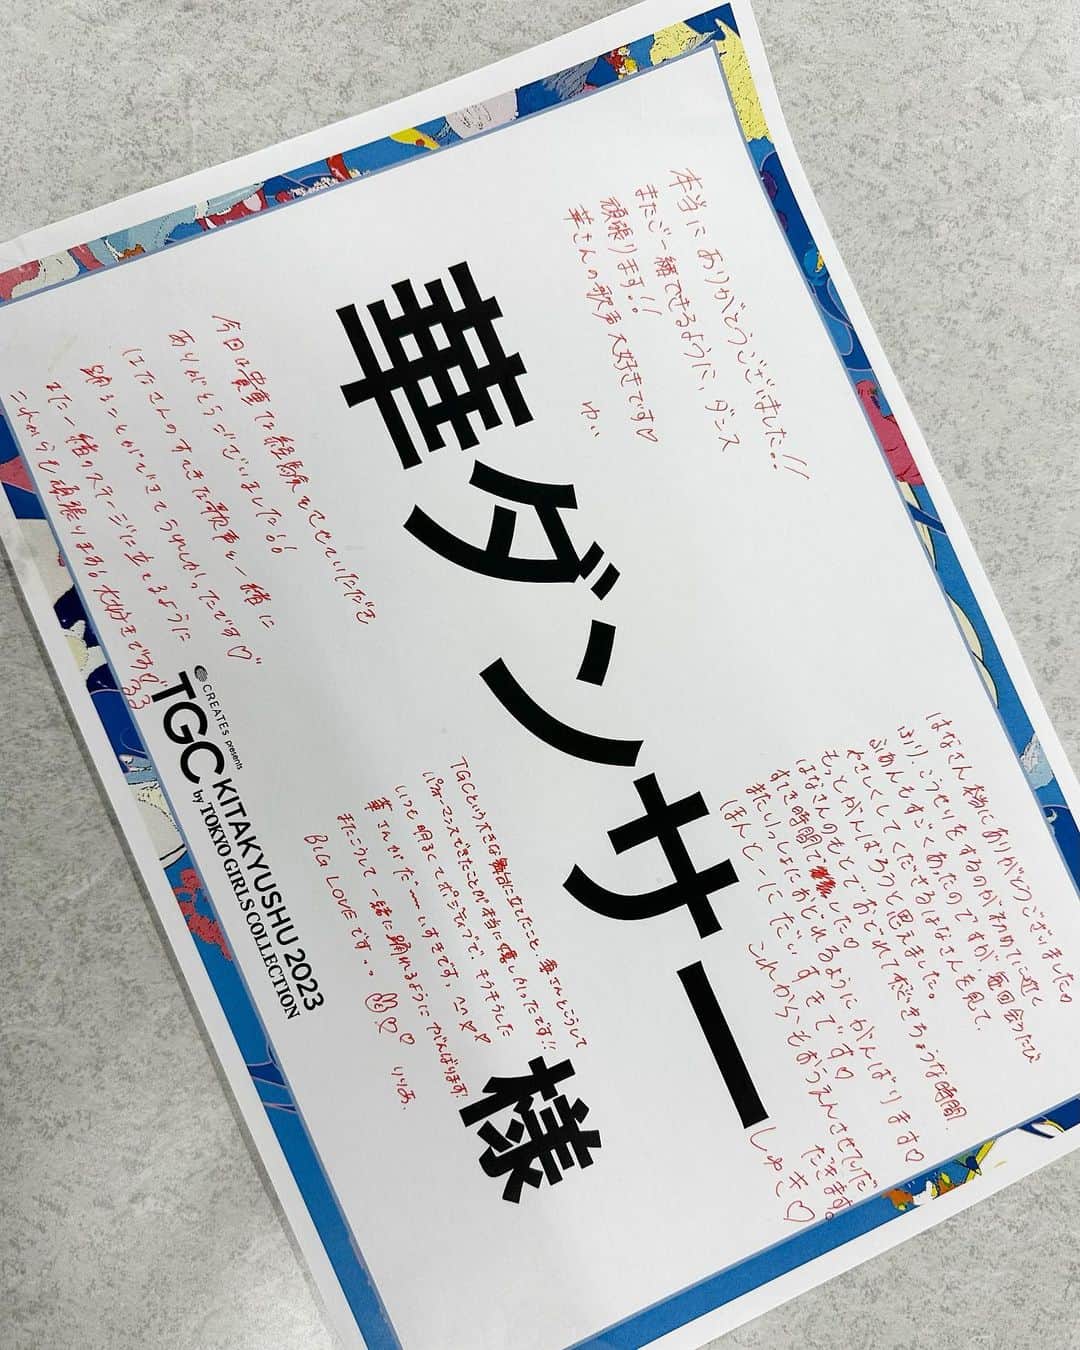 本当にありがとうございました!!
またご一緒できるように、ダンス
頑張ります!!
華さんの歌声大好きです♡
ゆい
はなさん本当にありがとうございました
ふり、こうせいをするのがわりて近く
ふあんもすごくあったのですが毎回会うたび
やさしくしてくださるはなさんを見て、
もっとがんばろうと思えました。
はなさんのもとでおどれてきちょうな時間、
すてき時間でした♡
またいっしょにおどれるようにがんばります♡
ほんとーにだいすきです♡
これからもおうえんさせていただ
だきます。
しゅき♡
華ダンサー様
今回は貴重な経験をさせていただき
ありがとうございました!!
はなさんのすてきな歌声と一緒に
踊ることができてうれしかったです♡
また一緒のステージに立てるように
これからも頑張ります!大好きです♡
るる
TGCという大きな舞台に立てたこと、華さんとこうして
パフォーマンスできたことが本当に嬉しかったです!!
いつも明るくてポジティブで、キラキラした
華さんがだーいすきです。♡♡
またこうして一緒に踊れるようにがんばります!
BIG LOVEです..♡♡
りりあ.
CREATEs presents
TGC KITAKYUSHU 2023
by TOKYO GIRLS COLLECTION